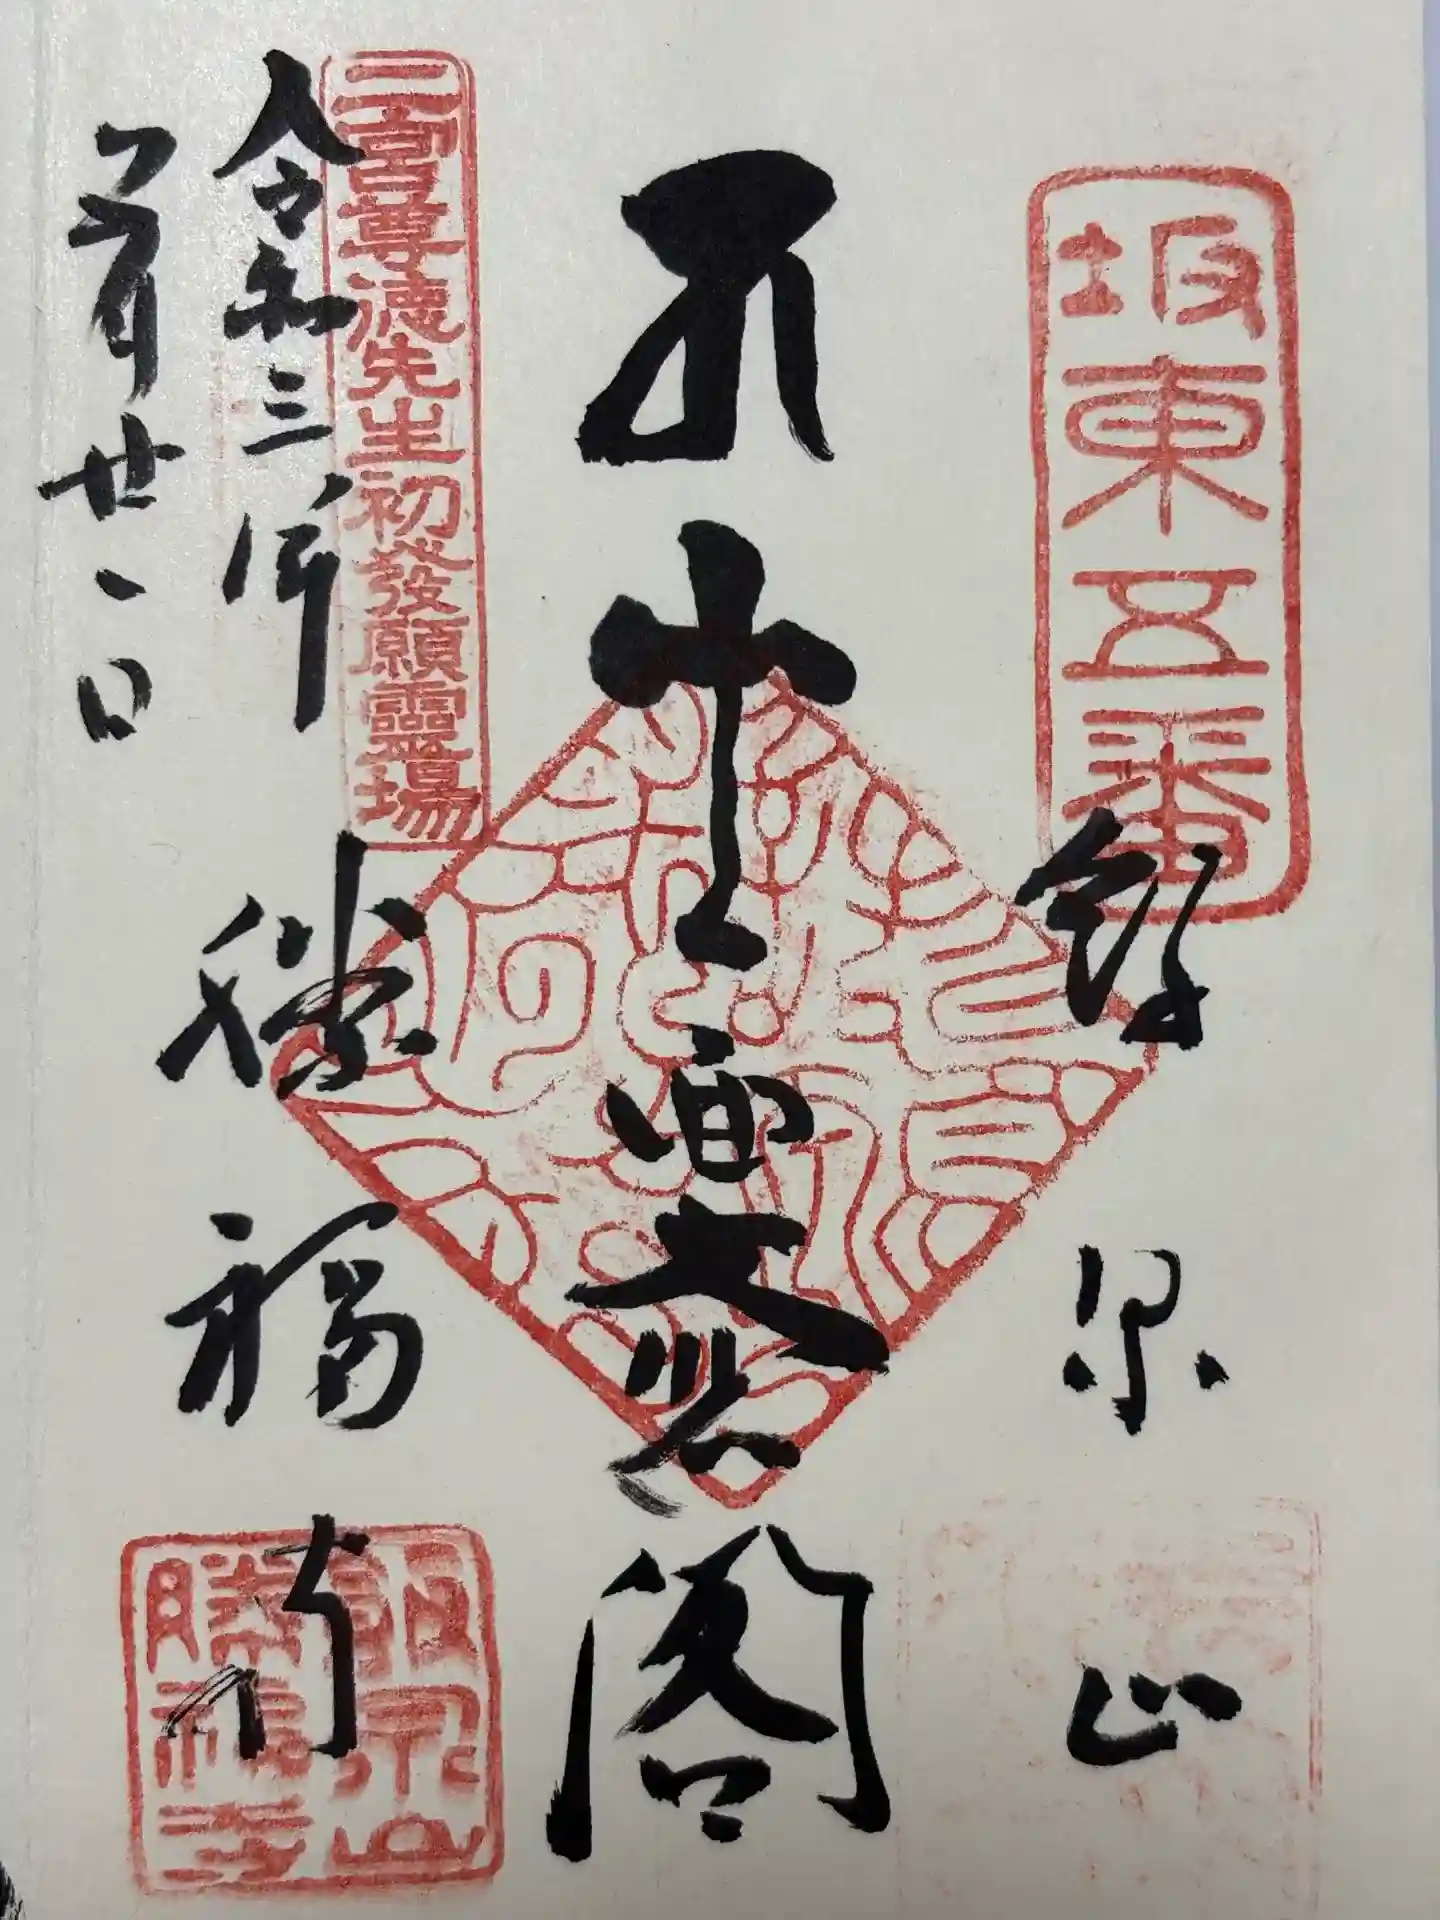 坂東五番
飯泉山
十一面大悲閣
二宮尊徳先生初發願靈場
勝福寺
令和三年
二月廿一日
飯泉山
勝福寺